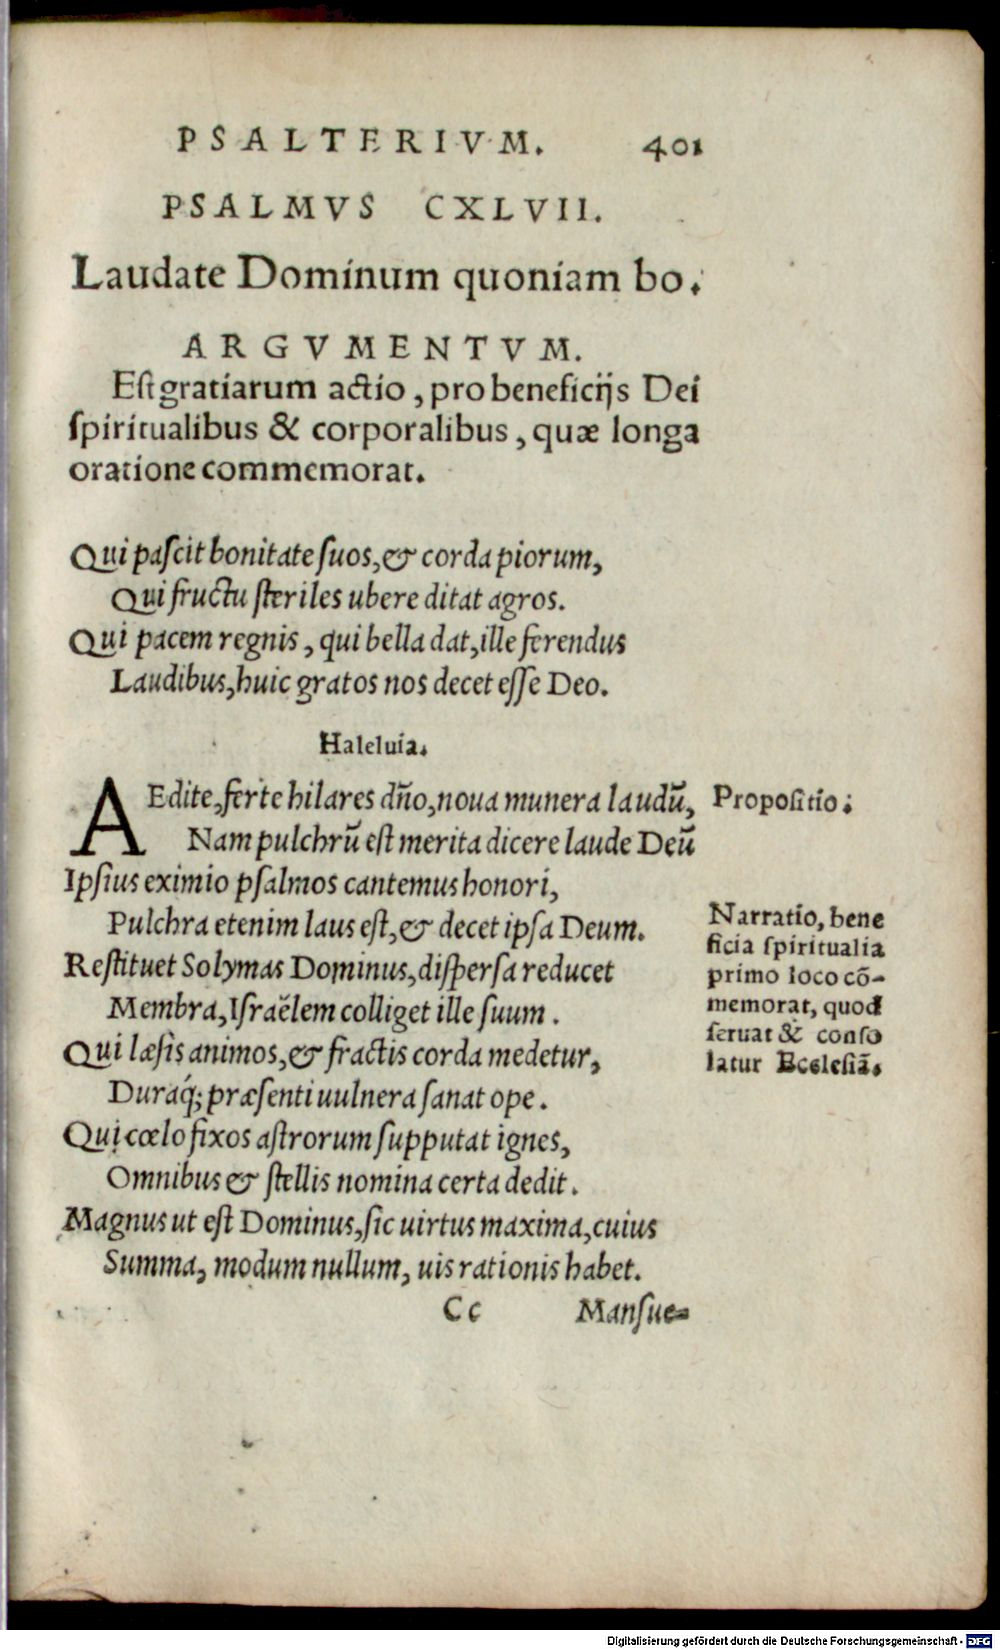 PSALTERIVM. 401
PSALMVS CXLVII.
Laudate Dominum quoniam bo.
ARGVMENTVM.
Est gratiarum actio, pro beneficijs Dei
spiritualibus & corporalibus, quæ longa
oratione commemorat.
Qui pascit bonitate suos, & corda piorum,
Qui fructu steriles ubere ditat agros.
Qui pacem regnis, qui bella dat, ille ferendus
Laudibus, huic gratos nos decet esse Deo.
Haleluia.
AEdite, ferte hilares dño, noua munera laudũ,
Nam pulchrũ est merita dicere laude Deũ
Ipsius eximio psalmos cantemus honori,
Pulchra etenim laus est, & decet ipsa Deum.
Restituet Solymas Dominus, dispersa reducet
Membra, Israëlem colliget ille suum.
Qui læsis animos, & fractis corda medetur,
Duraq́; præsenti uulnera sanat ope.
Qui cœlo fixos astrorum supputat ignes,
Omnibus & stellis nomina certa dedit.
Magnus ut est Dominus, sic uirtus maxima, cuius
Summa, modum nullum, uis rationis habet.
Cc Mansue-
Propositio.
Narratio, bene
ficia spiritualia
primo loco cõ-
memorat, quod
seruat & conso
latur Ecclesiã.
Digitalisierung gefördert durch die Deutsche Forschungsgemeinschaft - DFG